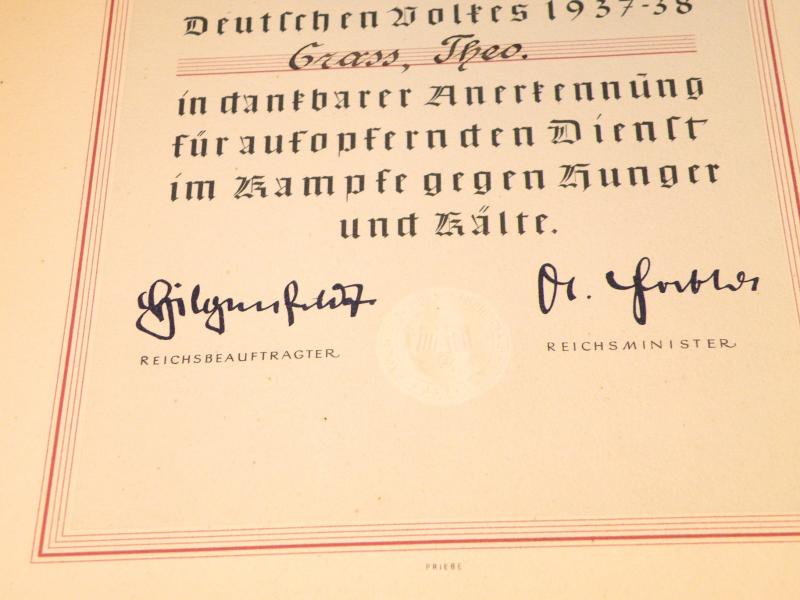 Deutschen Volkes 1937-38
Grass, Theo.
in dankbarer Anerkennung
für aufopfernden Dienst
im Kampfe gegen Hunger
und Kälte.
Hilgenfeldt Dr. Goebbels
REICHSBEAUFTRAGTER REICHSMINISTER
PRIEBE